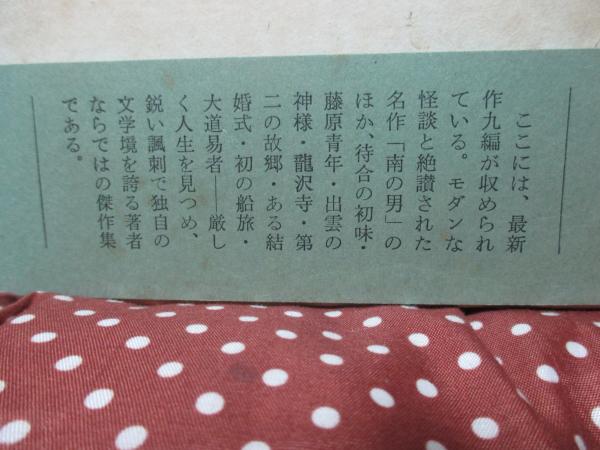 ここには、最新
作九編が収められ
ている。モダンな
怪談と絶讃された
名作「南の男」の
ほか、待合の初味・
藤原青年・出雲の
神様・龍沢寺・第
二の故郷・ある結
婚式・初の船旅・
大道易者――厳し
く人生を見つめ、
鋭い諷刺で独自の
文学境を誇る著者
ならではの傑作集
である。